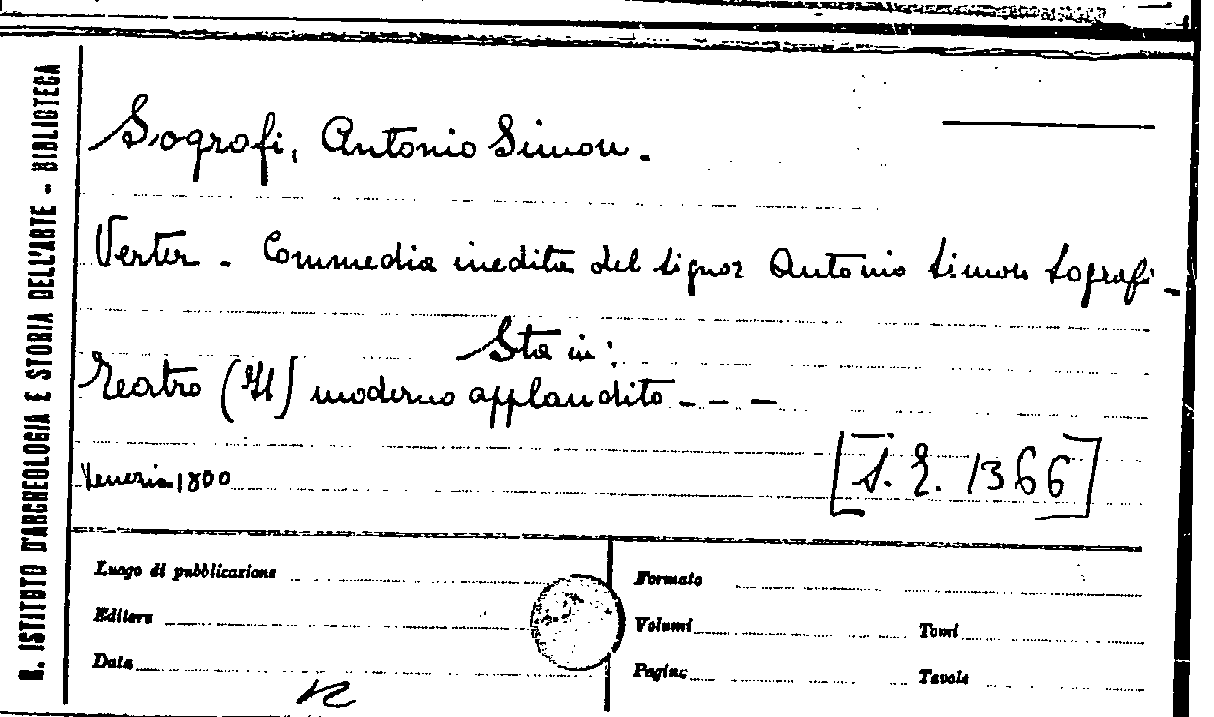 R. ISTITUTO D'ARCHEOLOGIA E STORIA DELL'ARTE - BIBLIOTECA
Sografi, Antonio Simon.
Verter - Commedia inedita del signor Antonio Simon Sografi -
Sta in:
Teatro (Il) moderno applaudito - - -
Venezia 1800
[S. E. 1366]
Luogo di pubblicazione
Editore
Data
Formato
Volumi Tomi
Pagine Tavole